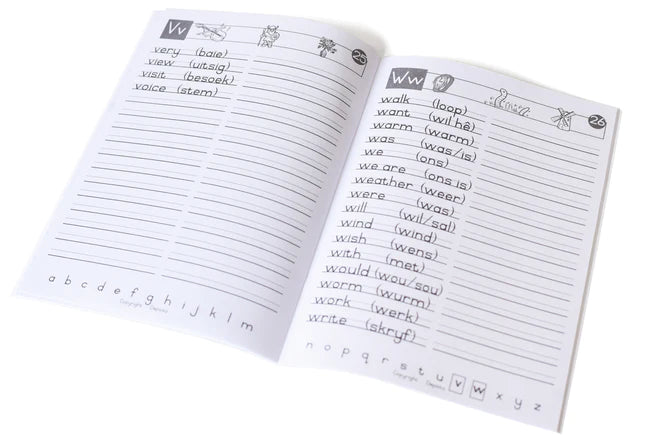 Vv
25
very (baie)
view (uitsig)
visit (besoek)
voice (stem)
a b c d e f g h i j k l m
Copyright
Ww
26
walk (loop)
want (wil hê)
warm (warm)
was (was/is)
we (ons)
we are (ons is)
weather (weer)
were (was)
will (wil/sal)
wind (wind)
wish (wens)
with (met)
would (wou/sou)
worm (wurm)
work (werk)
write (skryf)
n o p q r s t u v w x y z
Copyright